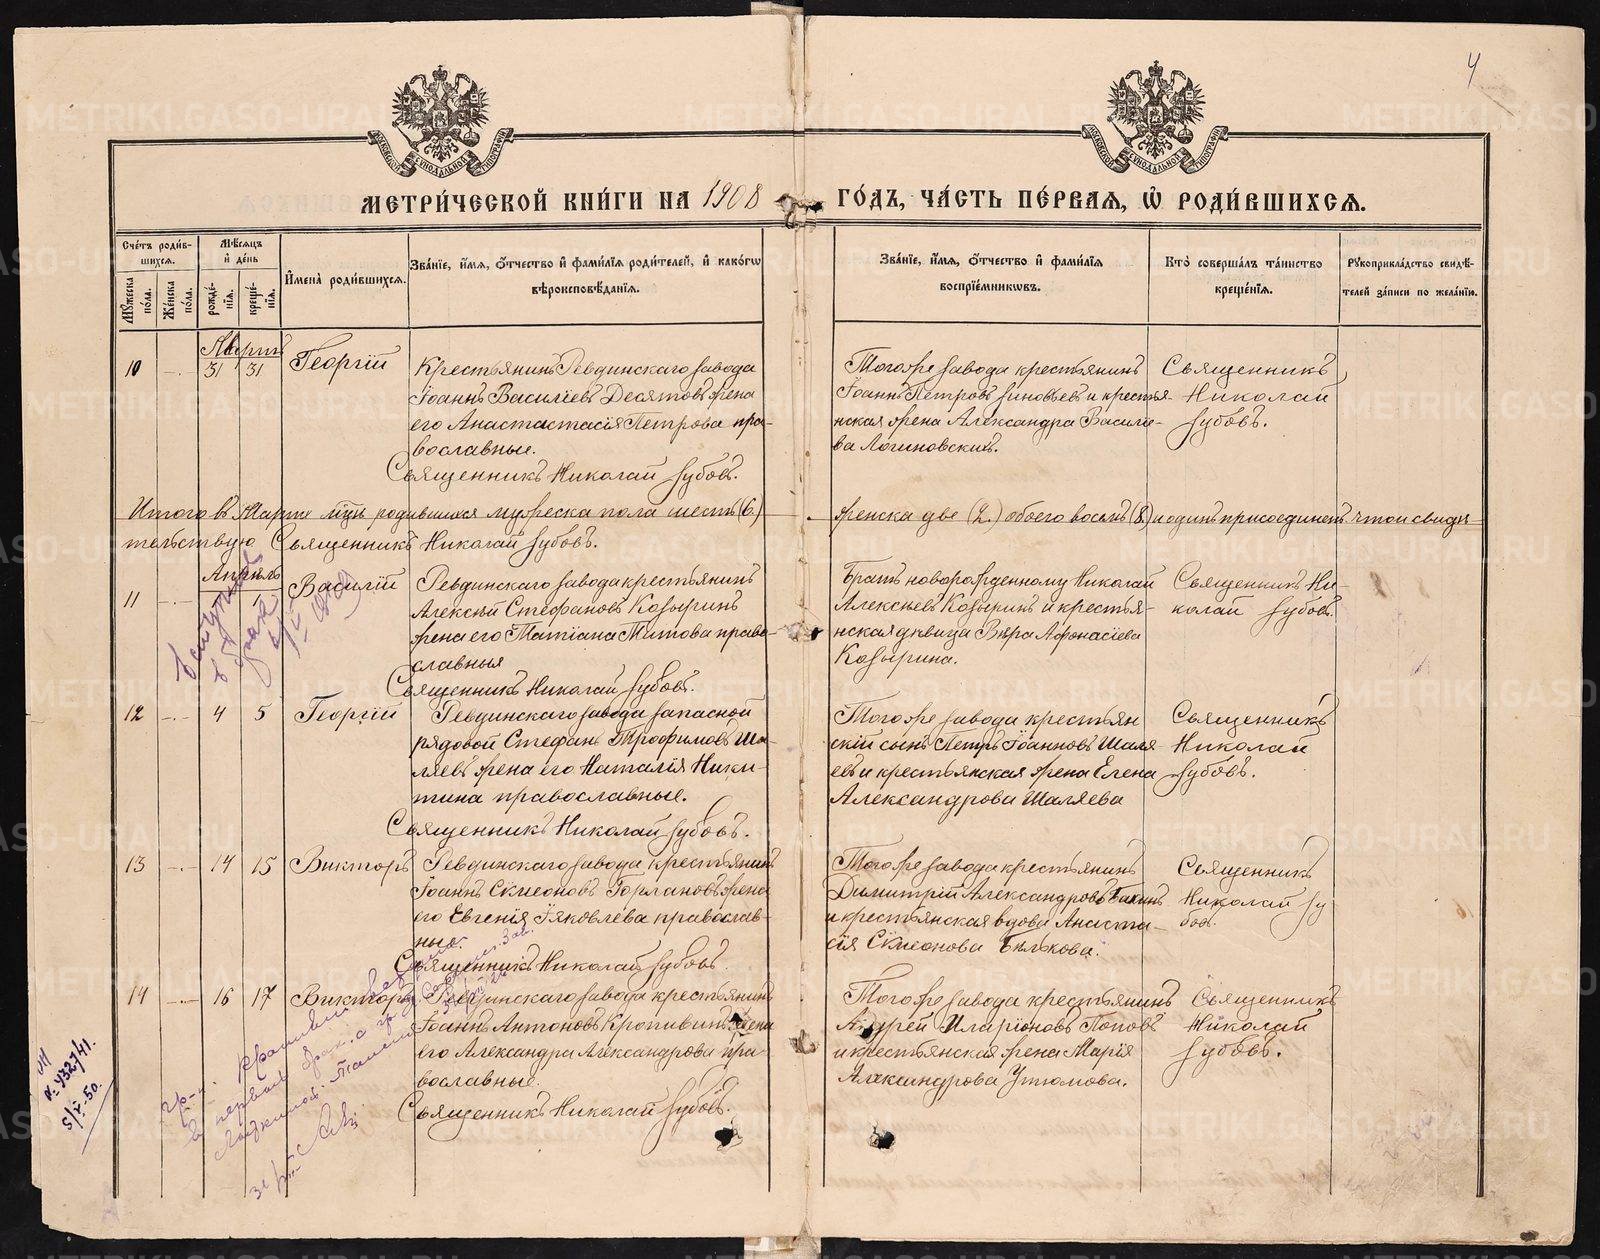 4
МЕТРИ́ЧЕСКОЙ КНИ́ГИ НА 1908 ГО́ДЪ, ЧА́СТЬ ПЕ́РВАЯ, Ѡ РОДИ́ВШИХСЯ.
Сче́тъ роди́вшихся.
Му́жеска по́ла.
Же́нска по́ла.
Мѣ́сяцъ и де́нь
рожде́нїя.
креще́нїя.
Имена̀ роди́вшихся.
Зва́нїе, и́мя, о́тчество и фами́лїя роди́телей, и како́гѡ
вѣроисповѣ́данїя.
Зва́нїе, и́мя, о́тчество и фами́лїя
воспрїе́мникѡвъ.
Кто̀ соверша́лъ та́инство
креще́нїя.
Рꙋкоприкла́дство свидѣ́-
телей за́писи по жела́нїю.
Мартъ
10 31 31 Георгій
Крестьянинъ Ревдинскаго завода
Іоаннъ Василіевъ Десятовъ жена
его Анастастасія Петрова пра-
вославные.
Священникъ Николай Зубовъ.
Тогоже завода крестьянинъ
Іоаннъ Петровъ Зиновьевъ и крестья-
нская жена Александра Василие-
ва Логиновскихъ.
Священникъ
Николай
Зубовъ.
Итого въ Марте м͠цѣ родившихся мужеска пола шесть (6.) женска две (2.) обоего восемь (8.) и одинъ присоединенъ, что и свиде-
тельствую Священникъ Николай Зубовъ.
Апрѣль
11 1 Василій
Ревдинскаго завода крестьянинъ
Алексѣй Стефановъ Козыринъ
жена его Татіана Титова право-
славныя
Священникъ Николай Зубовъ.
Братъ новорожденному Николай
Алексѣевъ Козыринъ и крестья-
нская дѣвица Вѣра Афонасіева
Козырина.
Священникъ Ни-
колай Зубовъ.
12 4 5 Георгій
Ревдинскаго завода запасной
рядовой Стефанъ Трофимовъ Ша-
ляевъ жена его Наталія Ники-
тина православные.
Священникъ Николай Зубовъ.
Тогоже завода крестьян
скій сынъ Петръ Іоанновъ Шаля
евъ и крестьянская жена Елена
Александрова Шаляева
Священникъ
Николай
Зубовъ.
13 14 15 Викторъ
Ревдинскаго завода крестьянинъ
Іоаннъ Сѵмеоновъ Горлановъ жена
его Евгенія Іяковлева православ-
ные.
Священникъ Николай Зубовъ.
Тогоже завода крестьянинъ
Димитрій Александровъ Бакинъ
и крестьянская вдова Анаста-
сія Сѵмеонова Бѣлькова.
Священникъ
Николай Зу
бовъ.
14 16 17 Викторъ
Ревдинскаго завода крестьянинъ
Іоаннъ Антоновъ Кропивинъ жена
его Александра Александрова пра-
вославные.
Священникъ Николай Зубовъ.
Тогоже завода крестьянинъ
Андрей Иларіоновъ Поповъ
и крестьянская жена Марія
Александрова Утюмова.
Священникъ
Николай
Зубовъ.